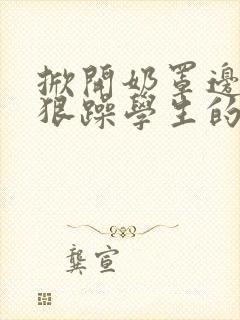 掀開奶罩邊
狠躁學生的
龔宣